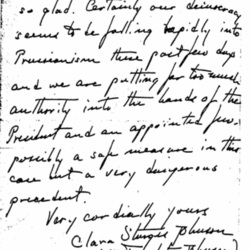 so glad. Certainly our democracy
seems to be falling rapidly into
Prussianism these past few days
and we are putting far too much
authority into the hands of the
President and an appointed few.
possibly a safe measure in this
case but a very dangerous
precedent
Very cordially yours
Clara Sturges Johnson